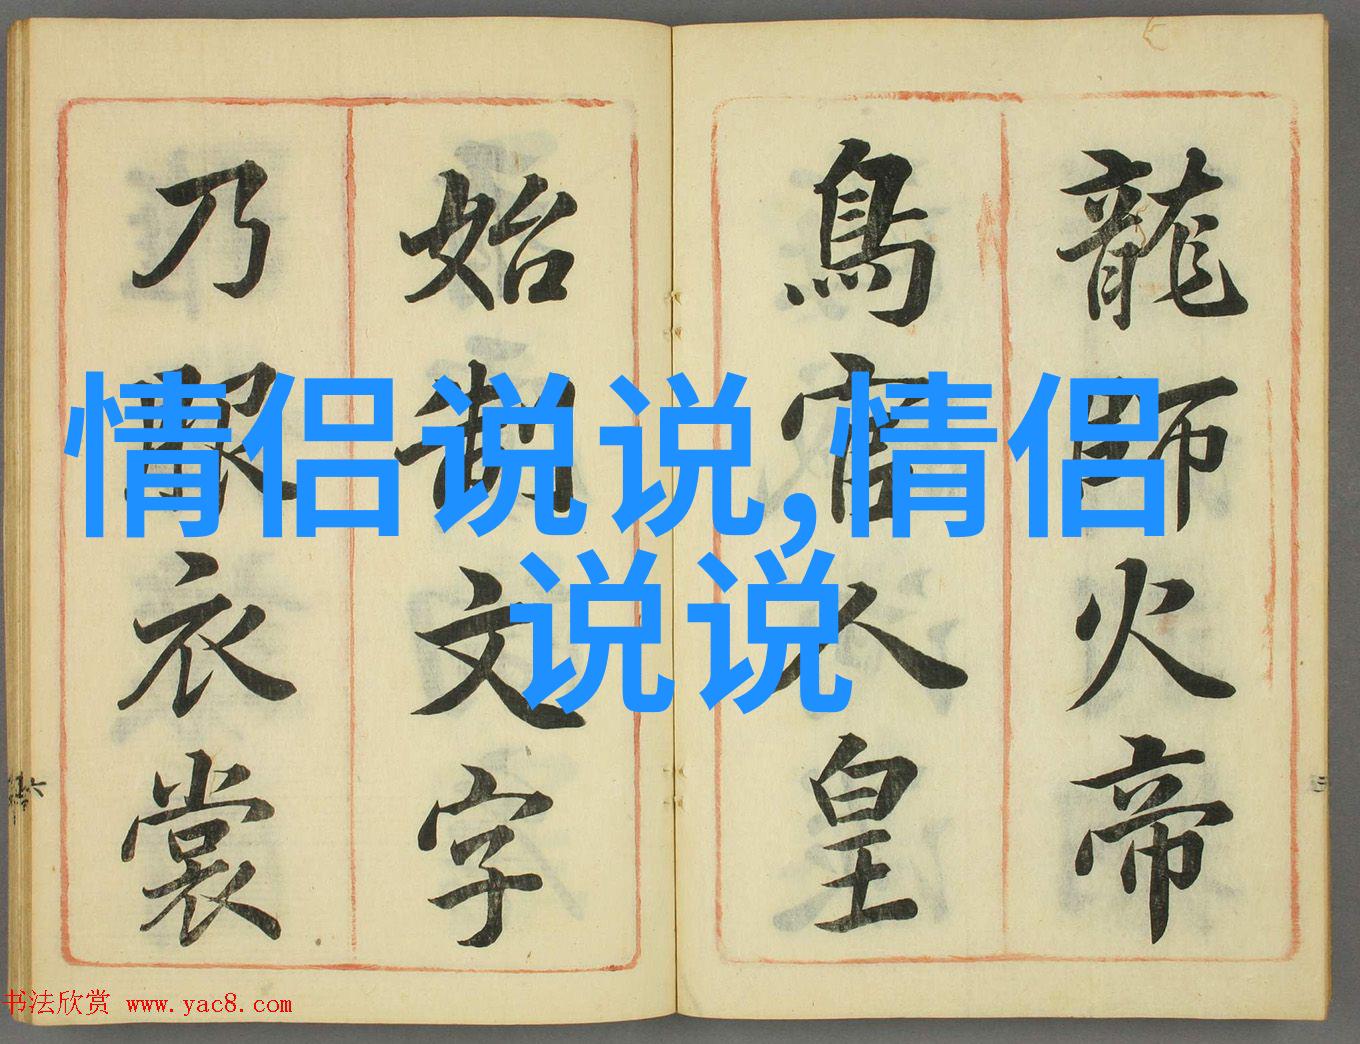 龍師火帝
鳥官人皇
始制文字
乃服衣裳
情侣说说,情侣
说说
书法欣赏 www.yac8.com